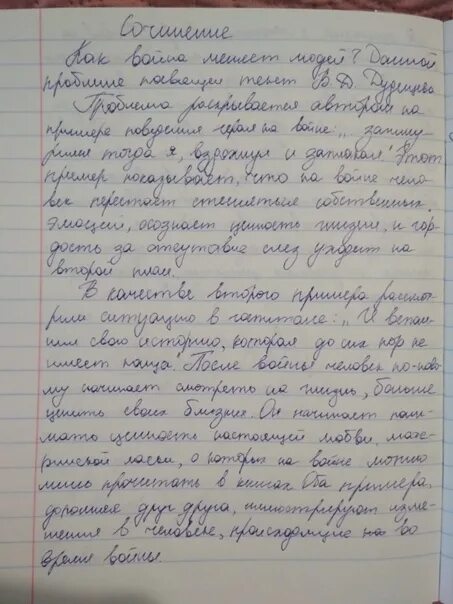 Сочинение
Как война меняет людей? Данной
проблеме посвящен текст В. Д. Дудинцева
Проблема раскрывается автором на
примере поведения героя на войне: „зажму-
рился тогда я, вздохнул и заплакал". Этот
пример показывает, что на войне чело-
век перестает стесняться собственных
эмоций, осознает ценность жизни, и гор-
дость за отсутствие слез уходит на
второй план.
В качестве второго примера рассмот-
рим ситуацию в госпитале: „И вспом-
нил свою историю, которая до сих пор не
имеет конца". После войны человек по-ново-
му начинает смотреть на жизнь, больше
ценить своих близких. Он начинает пони-
мать ценность настоящей любви, мате-
ринской ласки, о которых на войне можно
лишь прочитать в книгах Оба примера,
дополняя друг друга, иллюстрируют изме-
нения в человеке, происходящие на во
время войны.